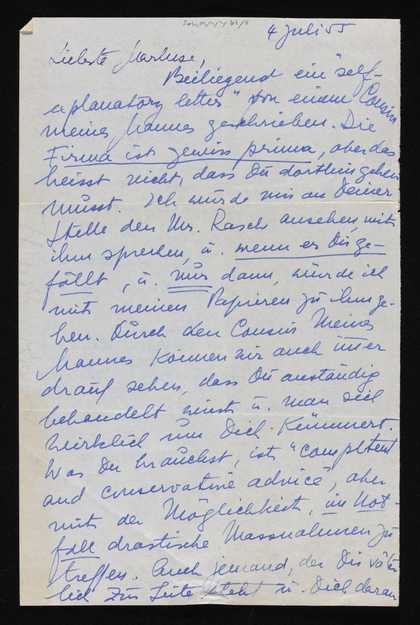 4 Juli 55
Liebste Marluse,
Beiliegend ein "self-
explanatory letter" von einem Cousin
meines Mannes geschrieben. Die
Firma ist gewiss prima, aber das
heisst nicht, dass Du dorthin gehen
musst. Ich würde mir an Deiner
Stelle den Mr. Rasch ansehen, mit
ihm sprechen, u. wenn er Dir ge-
fällt, u. nur dann, würde ich
mit meinen Papieren zu ihm ge-
hen. Durch den Cousin meines
Mannes können wir auch immer
drauf sehen, dass Du anständig
behandelt wirst u. man sich
wirklich um Dich kümmert.
Was Du brauchst, ist "competent
and conservative advice", aber
mit der Möglichkeit, im Not-
fall drastische Massnahmen zu
treffen. Auch jemand, der Dir väter-
lich zur Seite steht u. Dich daran